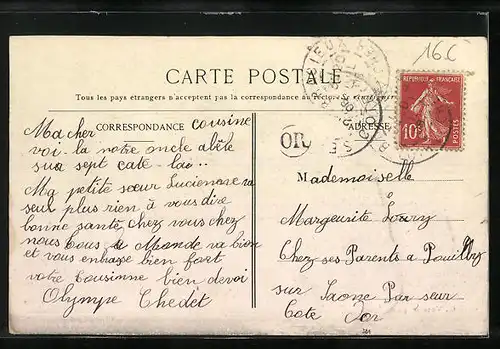 16C
CARTE POSTALE
Tous les pays étrangers n'acceptent pas la correspondance au
CORRESPONDANCE
ADRESSE
RÉPUBLIQUE FRANÇAISE
10c
POSTES
OR
Ma cher cousine
voi-la notre oncle abête
sua sept cate-lai..
Ma petite sœur Lucienne va
seur plus rien à vous dire
bonne santé chez vous chez
nous tous le Monde va bien
et vous embrase bien fort
votre Cousinne bien devoi
Olympe Chedet
Mademoiselle
Marguerite Loury
Chez ses Parents a Pouilly
sur Saone Par seur
Cote Dor